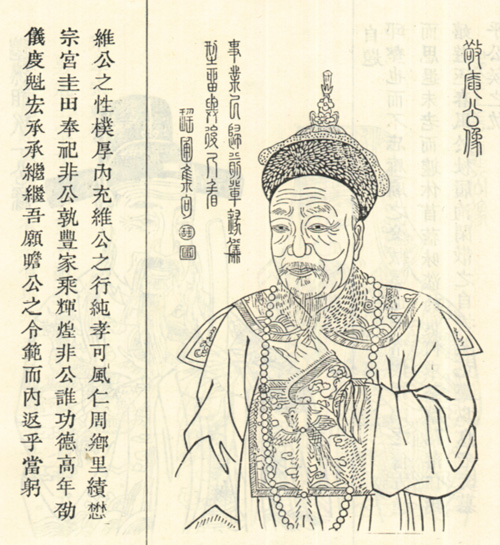 敬庵公像
事業久歸前輩錄典
型留與後人看
集句
維公之性樸厚內充維公之行純孝可風仁周鄉里績懋
宗宮圭田奉祀非公孰豐家乘輝煌非公誰功德高年劭
儀度魁宏承承繼繼吾願瞻公之令範而內返乎當躬